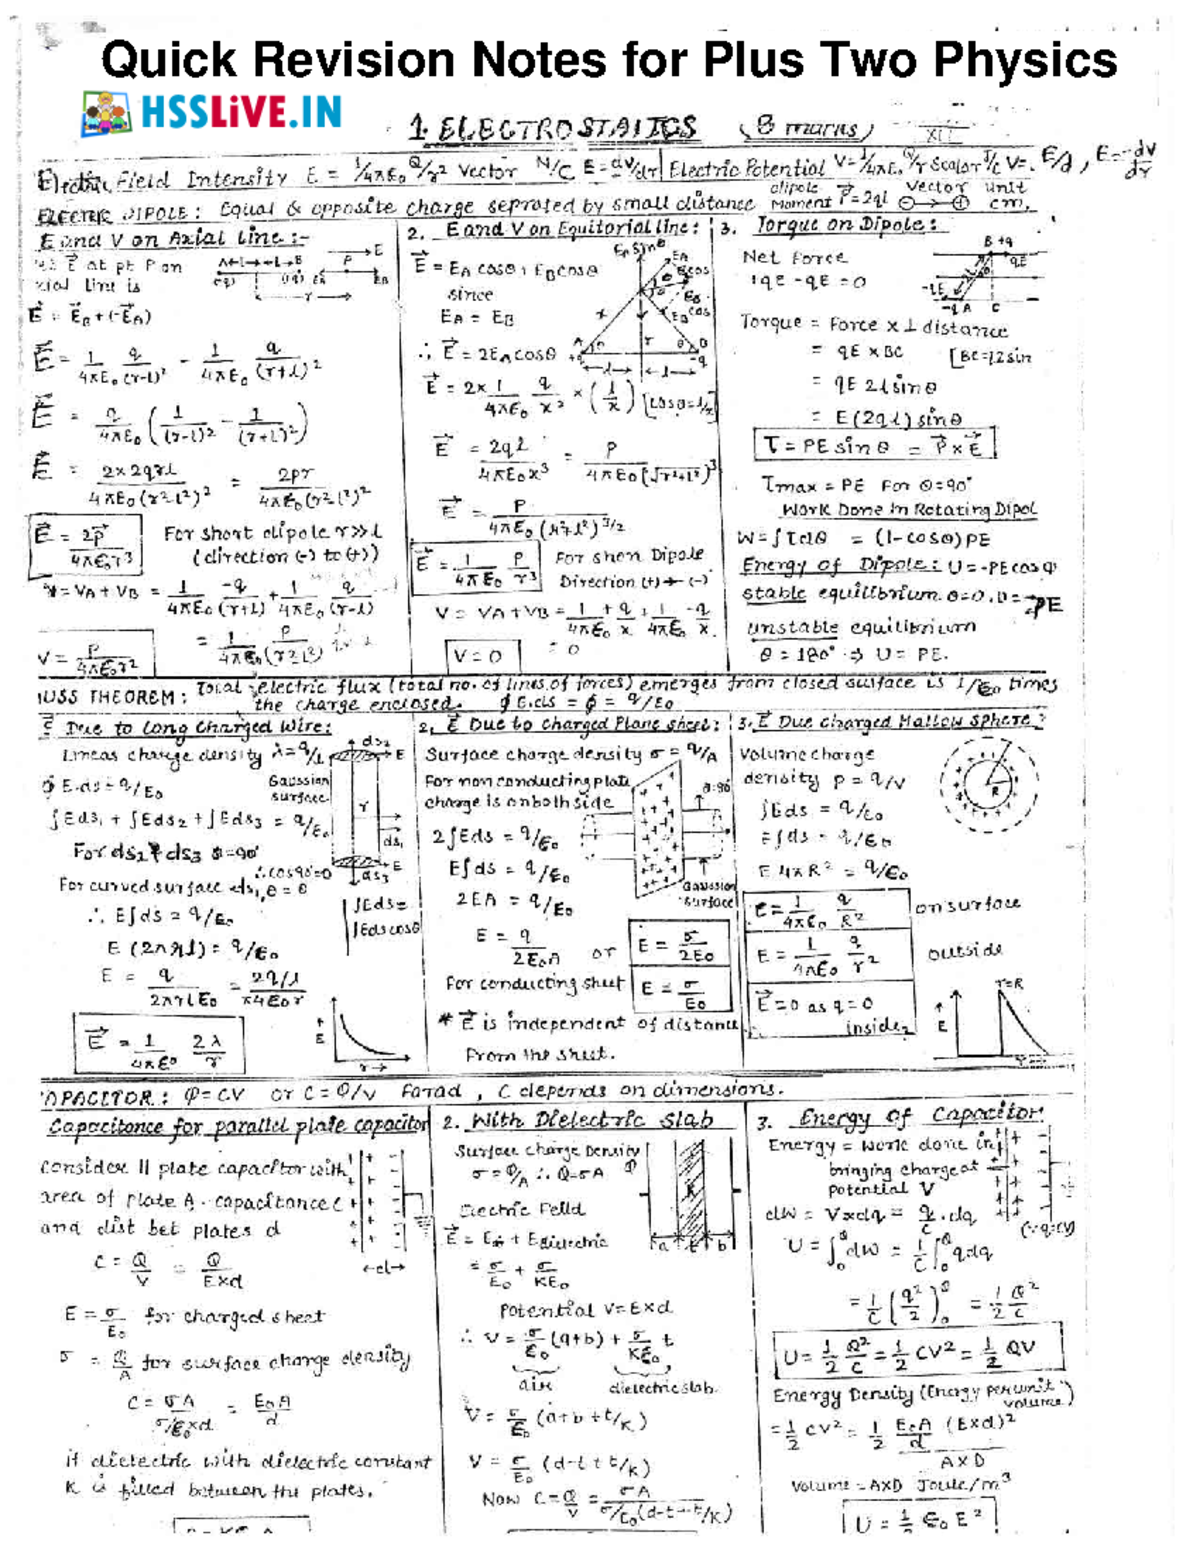 Quick Revision Notes for Plus Two Physics
HSSLiVE.IN
1. ELECTROSTATICS (8 marks) XII
Electric Field Intensity E = 1/4πE₀ Q/r² Vector N/C E = -dV/dr | Electric Potential V = 1/4πE₀ Q/r Scalar J/C V = E/d , E = -dV/dr
ELECTRIC DIPOLE : Equal & opposite charge seprated by small distance dipole Moment P⃗ = 2ql Vector unit cm.
E and V on Axial line :-
E⃗ at pt P on
xial line is
E⃗ = E⃗B + (-E⃗A)
E⃗ = 1/4πE₀ q/(r-l)² - 1/4πE₀ q/(r+l)²
E⃗ = q/4πE₀ (1/(r-l)² - 1/(r+l)²)
E⃗ = 2x2qrl/4πE₀(r²l²)² = 2pr/4πE₀(r²l²)²
E⃗ = 2p⃗/4πE₀r³ For short dipole r>>l
(direction (-) to (+))
V = VA + VB = 1/4πE₀ -q/(r+l) + 1/4πE₀ q/(r-l)
= 1/4πE₀ P/(r²l²)
V = P/4πE₀r²
2. E and V on Equitorial line :
E⃗ = EA cosθ + EB cosθ
since
EA = EB
∴ E⃗ = 2EA cosθ
E⃗ = 2x 1/4πE₀ q/x² x (l/x) [cosθ = l/x]
E⃗ = 2ql/4πE₀x³ = P/4πE₀(√r²+l²)³
E⃗ = P/4πE₀(r²+l²)^3/2
E⃗ = 1/4πE₀ P/r³ For short Dipole
Direction (+) → (-)
V = VA + VB = 1/4πE₀ +q/x + 1/4πE₀ -q/x
V = 0 = 0
3. Torque on Dipole :
Net Force
+qE - qE = 0
Torque = Force x ⊥ distance
= qE x BC [BC = l2 sin
= qE 2l sinθ
= E(2ql) sinθ
τ = PE sinθ = P⃗ x E⃗
τmax = PE For θ=90°
Work Done in Rotating Dipol
W = ∫τdθ = (1-cosθ)PE
Energy of Dipole : U = -PE cosθ
stable equilibrium θ=0, U = -PE
unstable equilibrium
θ = 180° ⇒ U = PE.
USS THEOREM : Total electric flux (total no. of lines of forces) emerges from closed surface is 1/E₀ times
the charge enclosed. ∮E.ds = ϕ = q/E₀
E⃗ Due to Long Charged Wire :
Lineas charge density λ = q/l
∮E.ds = q/E₀ Gaussian surface
∫Eds₁ + ∫Eds₂ + ∫Eds₃ = q/E₀
For ds₂ & ds₃ θ=90°
∴ cos90°=0
For curved surface ds₁, θ = 0
∴ E∫ds = q/E₀ ∫Eds =
∫Eds cosθ
E(2πrl) = q/E₀
E = q/2πrlE₀ = 2q/l/x4E₀r
E⃗ = 1/4πE₀ 2λ/r
2. E⃗ Due to Charged Plane sheet :
Surface charge density σ = q/A
For non conducting plate
charge is on both side θ=90°
2∫Eds = q/E₀
E∫ds = q/E₀
2EA = q/E₀ Gaussian surface
E = q/2E₀A or E = σ/2E₀
For conducting sheet E = σ/E₀
* E⃗ is independent of distanc
From the sheet.
3. E⃗ Due charged Hallow sphere :
Volume charge
density ρ = q/V
∫Eds = q/E₀
E∫ds = q/E₀
E 4πR² = q/E₀
E = 1/4πE₀ q/R² on surface
E = 1/4πE₀ q/r² outside
E⃗ = 0 as q = 0 inside
r=R
APACITOR : Q = CV or C = Q/V Farad , C depends on dimensions.
Capacitance for parallel plate capacitor
Consider || plate capacitor with
area of plate A. capacitance C
and dist bet plates d
C = Q/V = Q/Exd
E = σ/E₀ for charged sheet
σ = Q/A for surface charge density
C = σA/σ/E₀xd = E₀A/d
if dielectric with dielectric constant
K is filled between the plates.
2. With Dielectric Slab
Surface Charge Density
σ = Q/A ∴ Q = σA
Electric Feild
E⃗ = Eair + Edielectric
= σ/E₀ + σ/KE₀
Potential V = Exd
∴ V = σ/E₀ (a+b) + σ/KE₀ t
air dielectric slab
V = σ/E₀ (a+b+t/K)
V = σ/E₀ (d-t+t/K)
Now C = Q/V = σA/σ/E₀(d-t+t/K)
3. Energy of Capacitor
Energy = work done in
bringing charge at
potential V
dW = Vxdq = q/C . dq (∵q=CV)
U = ∫₀Q dW = 1/C ∫₀Q q dq
= 1/C (q²/2)₀Q = 1/2 Q²/C
U = 1/2 Q²/C = 1/2 CV² = 1/2 QV
Energy Density (Energy per unit volume)
= 1/2 CV² = 1/2 E₀A/d (Exd)²
AXD
Volume = AXD Joule/m³
U = 1/2 E₀E²